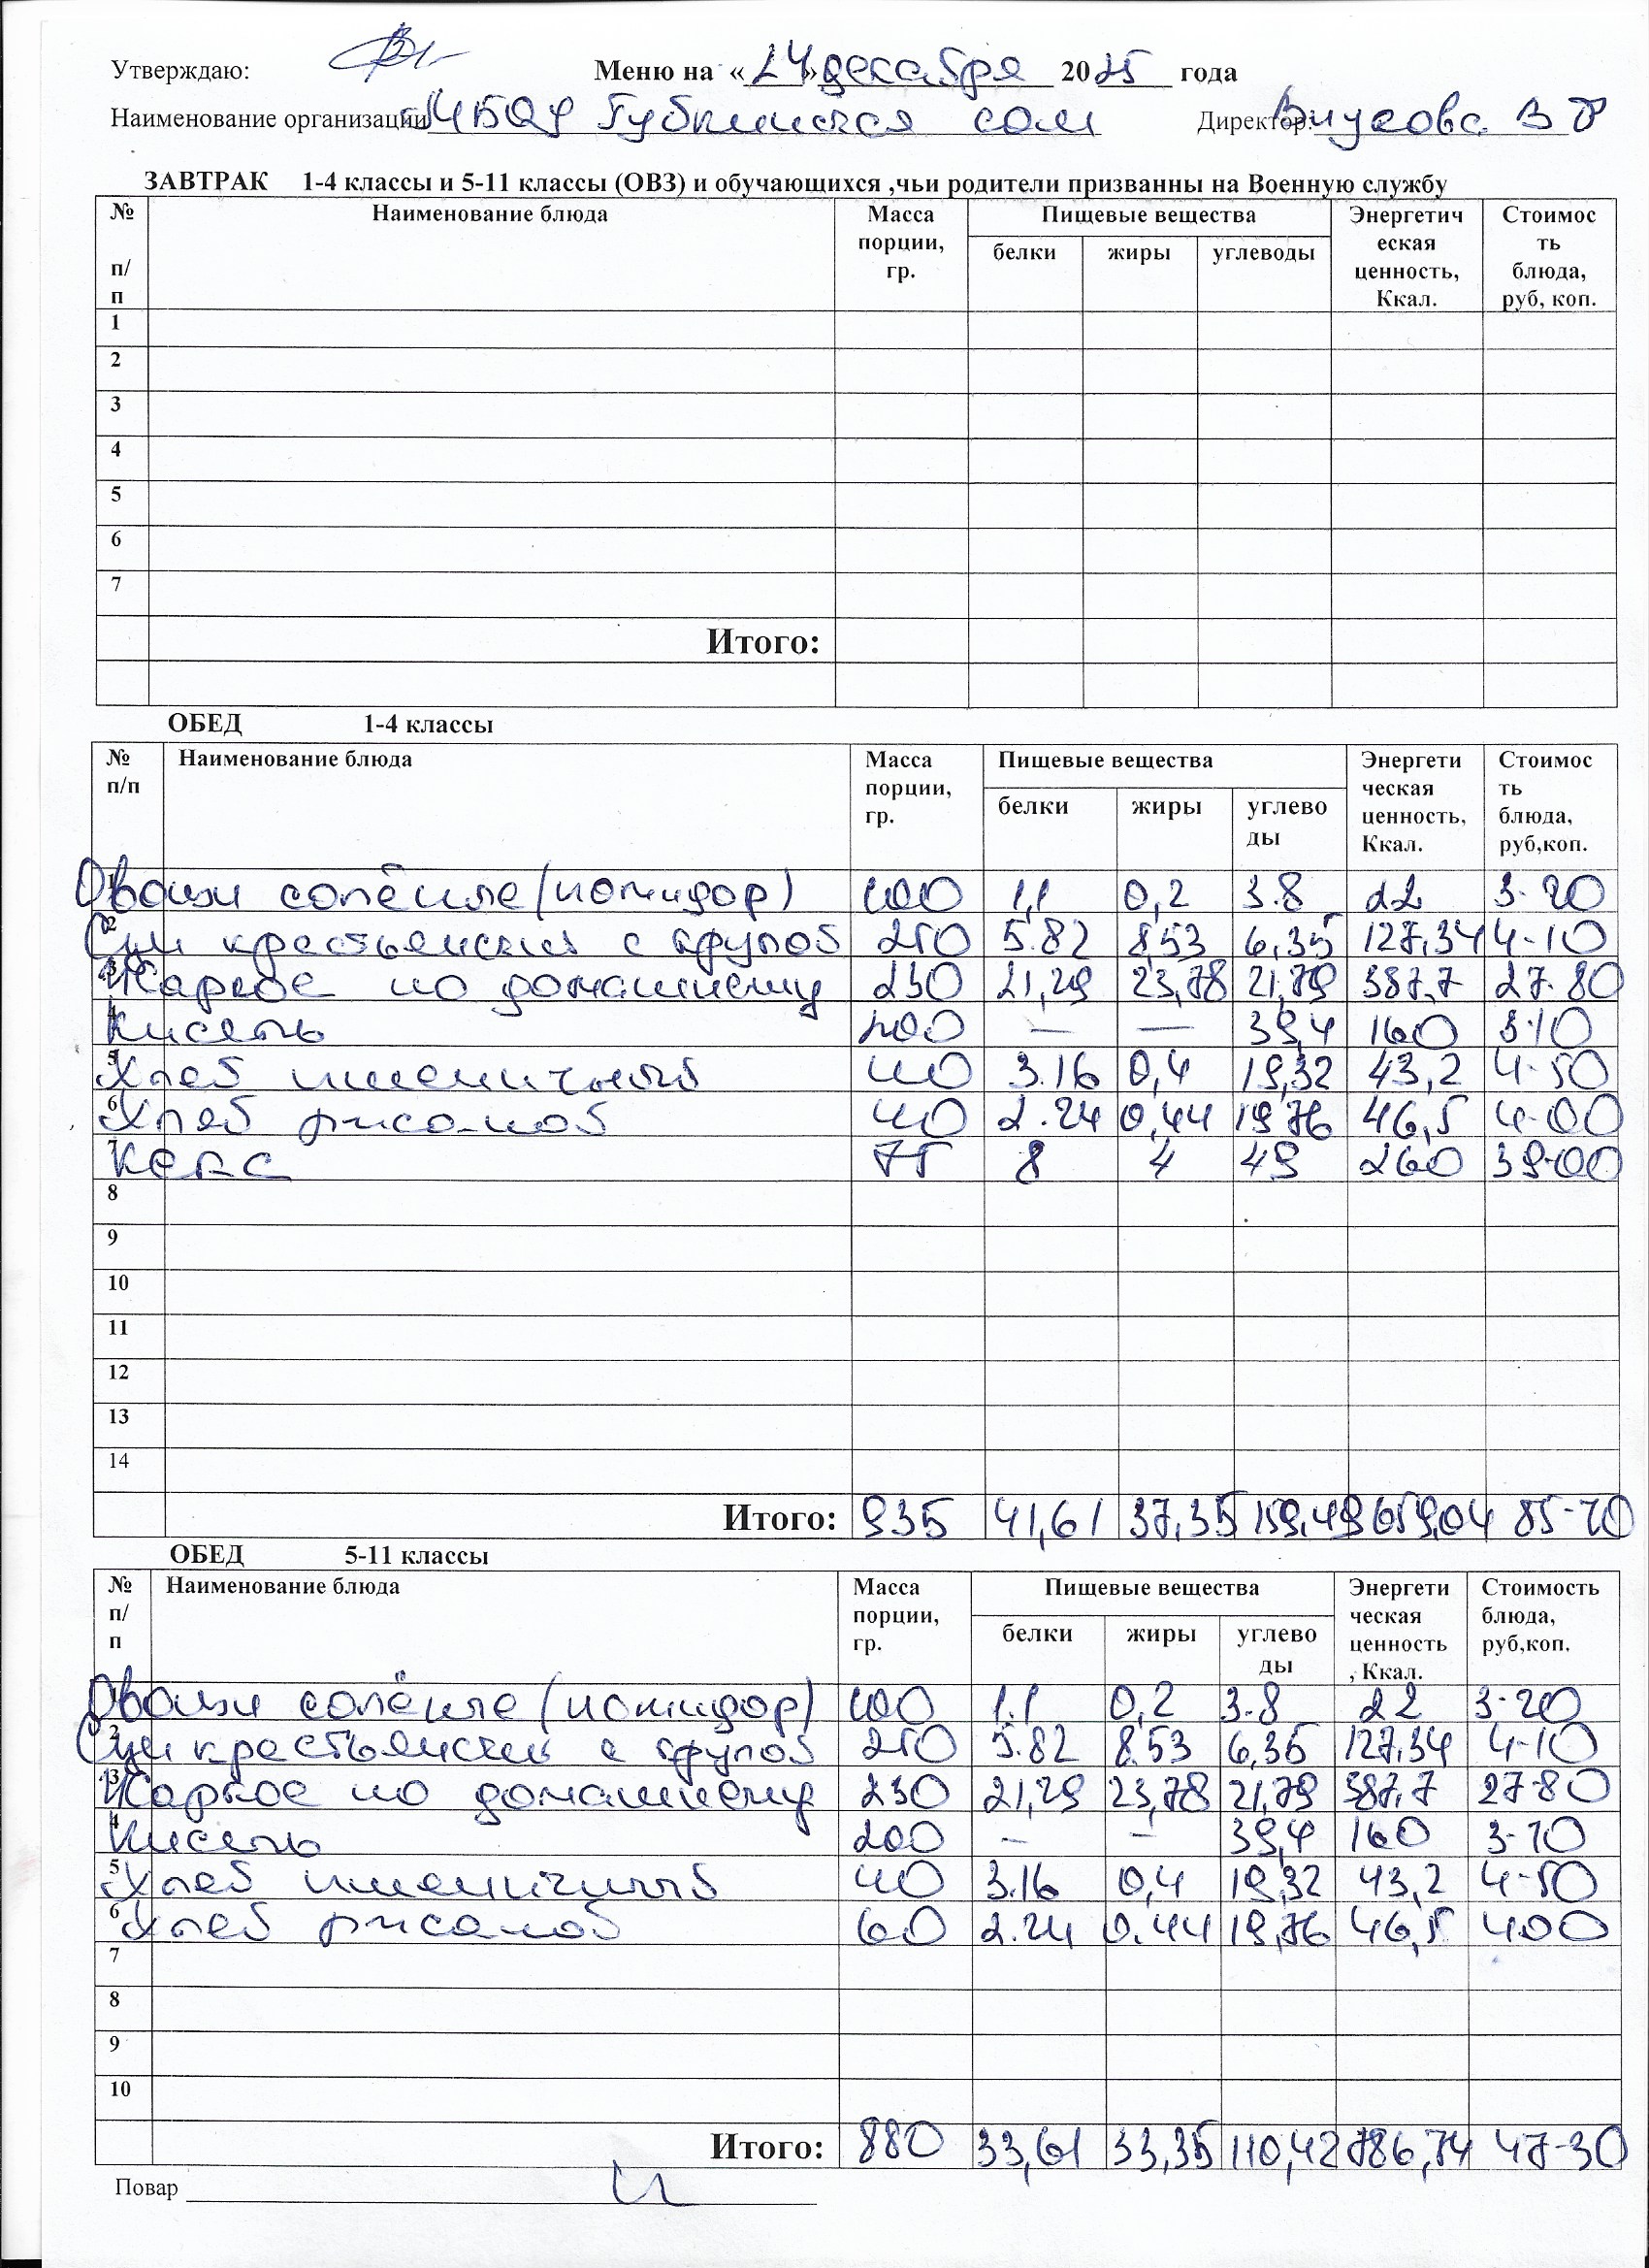 Утверждаю: Меню на «24» декабря 2025 года
Наименование организации МБОУ Губкинская сош Директор:
ЗАВТРАК 1-4 классы и 5-11 классы (ОВЗ) и обучающихся ,чьи родители призванны на Военную службу
№ п/п Наименование блюда Масса порции, гр. Пищевые вещества Энергетическая ценность, Ккал. Стоимость блюда, руб, коп.
белки жиры углеводы
1
2
3
4
5
6
7
Итого:
ОБЕД 1-4 классы
№ п/п Наименование блюда Масса порции, гр. Пищевые вещества Энергетическая ценность, Ккал. Стоимость блюда, руб,коп.
белки жиры углеводы
1 Овощи солёные (помидор) 100 1,1 0,2 3.8 22 3-20
2 Суп крестьянский с крупой 250 5.82 8,53 6,35 127,34 4-10
3 Жаркое по домашнему 230 21,29 23,78 21,79 387,7 27-80
4 Кисель 200 — — 39,4 160 3-10
5 Хлеб пшеничный 40 3.16 0,4 19,32 43,2 4-50
6 Хлеб ржаной 40 2.24 0,44 19,76 46,5 4-00
7 Кекс 75 8 4 49 260 39-00
8
9
10
11
12
13
14
Итого: 935 41,61 37,35 159,49 659,04 85-70
ОБЕД 5-11 классы
№ п/п Наименование блюда Масса порции, гр. Пищевые вещества Энергетическая ценность, Ккал. Стоимость блюда, руб,коп.
белки жиры углеводы
1 Овощи солёные (помидор) 100 1.1 0,2 3.8 22 3-20
2 Суп крестьянский с крупой 250 5.82 8.53 6,35 127,34 4-10
3 Жаркое по домашнему 230 21,29 23,78 21,79 387,7 27-80
4 Кисель 200 – – 39,4 160 3-70
5 Хлеб пшеничный 40 3.16 0,4 19,32 43,2 4-50
6 Хлеб ржаной 60 2.24 0.44 19,76 46,5 4.00
7
8
9
10
Итого: 880 33,61 33,35 110,42 786,74 47-30
Повар